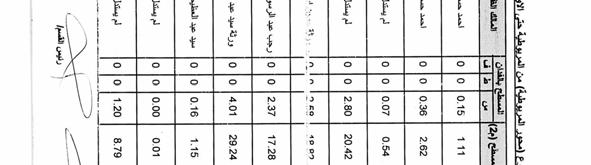 ع (محور المريوطية) من المريوطية حتى الاو
المسطح بالفدان مسطح (م2)
ف ط س
احمد حسـ 0 0 0.15 1.11
احمد حسـ 0 0 0.36 2.62
لم يستد 0 0 0.07 0.54
لم يستد 0 0 2.80 20.42
0 0 2.58 18.82
رجب عبد الرسو 0 0 2.37 17.28
ورثة سيد عبد 0 0 4.01 29.24
سيد عبد العظيـ 0 0 0.16 1.15
لم يستد 0 0 0.00 0.01
لم يستد 0 0 1.20 8.79
رئيس القسم/